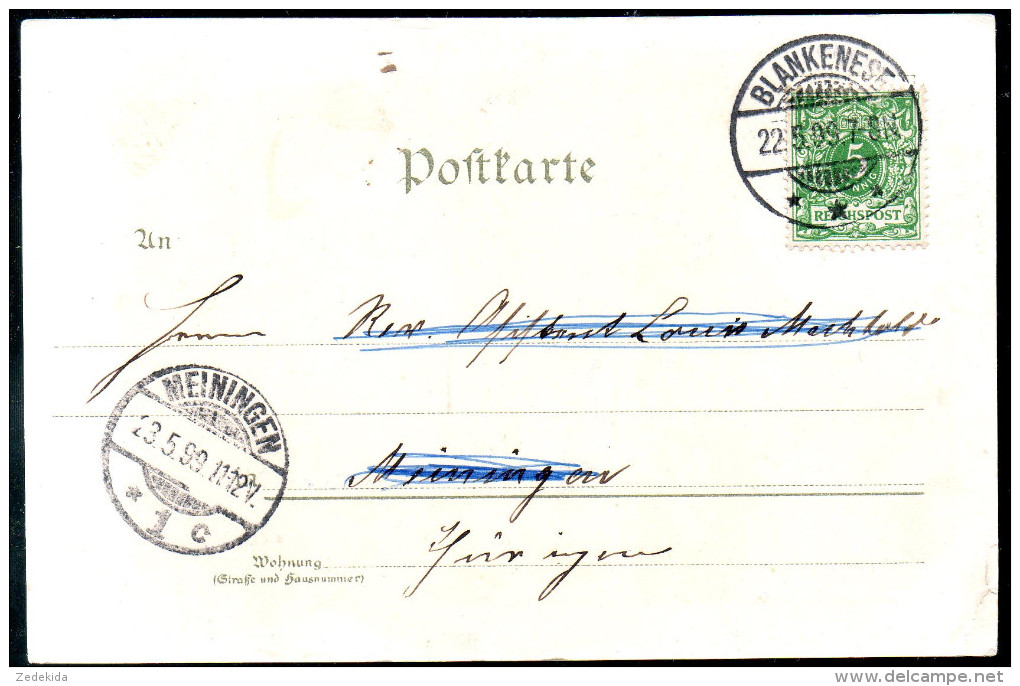 BLANKENESE
22.5.99.7-8N.
5
PFENNIG
REICHSPOST
Postkarte
An
Herrn Rev. Assistent Louis
Meiningen
Thüringen
MEININGEN
23.5.99.11-12V.
* 1 c
Wohnung
(Straße und Hausnummer)
Zedekida
delcampe.net